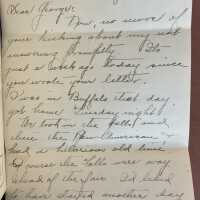 Dear George:-
Now, no more of
your kicking about my not
answering promptly. It's
just a week ago today since
you wrote your letter.
I was in Buffalo that day
got home Sunday night.
We took in the Falls and
then the Pan-American &
had a hilarious old time
of course the Falls were way
ahead of the fair. I'd liked
to have staid another day